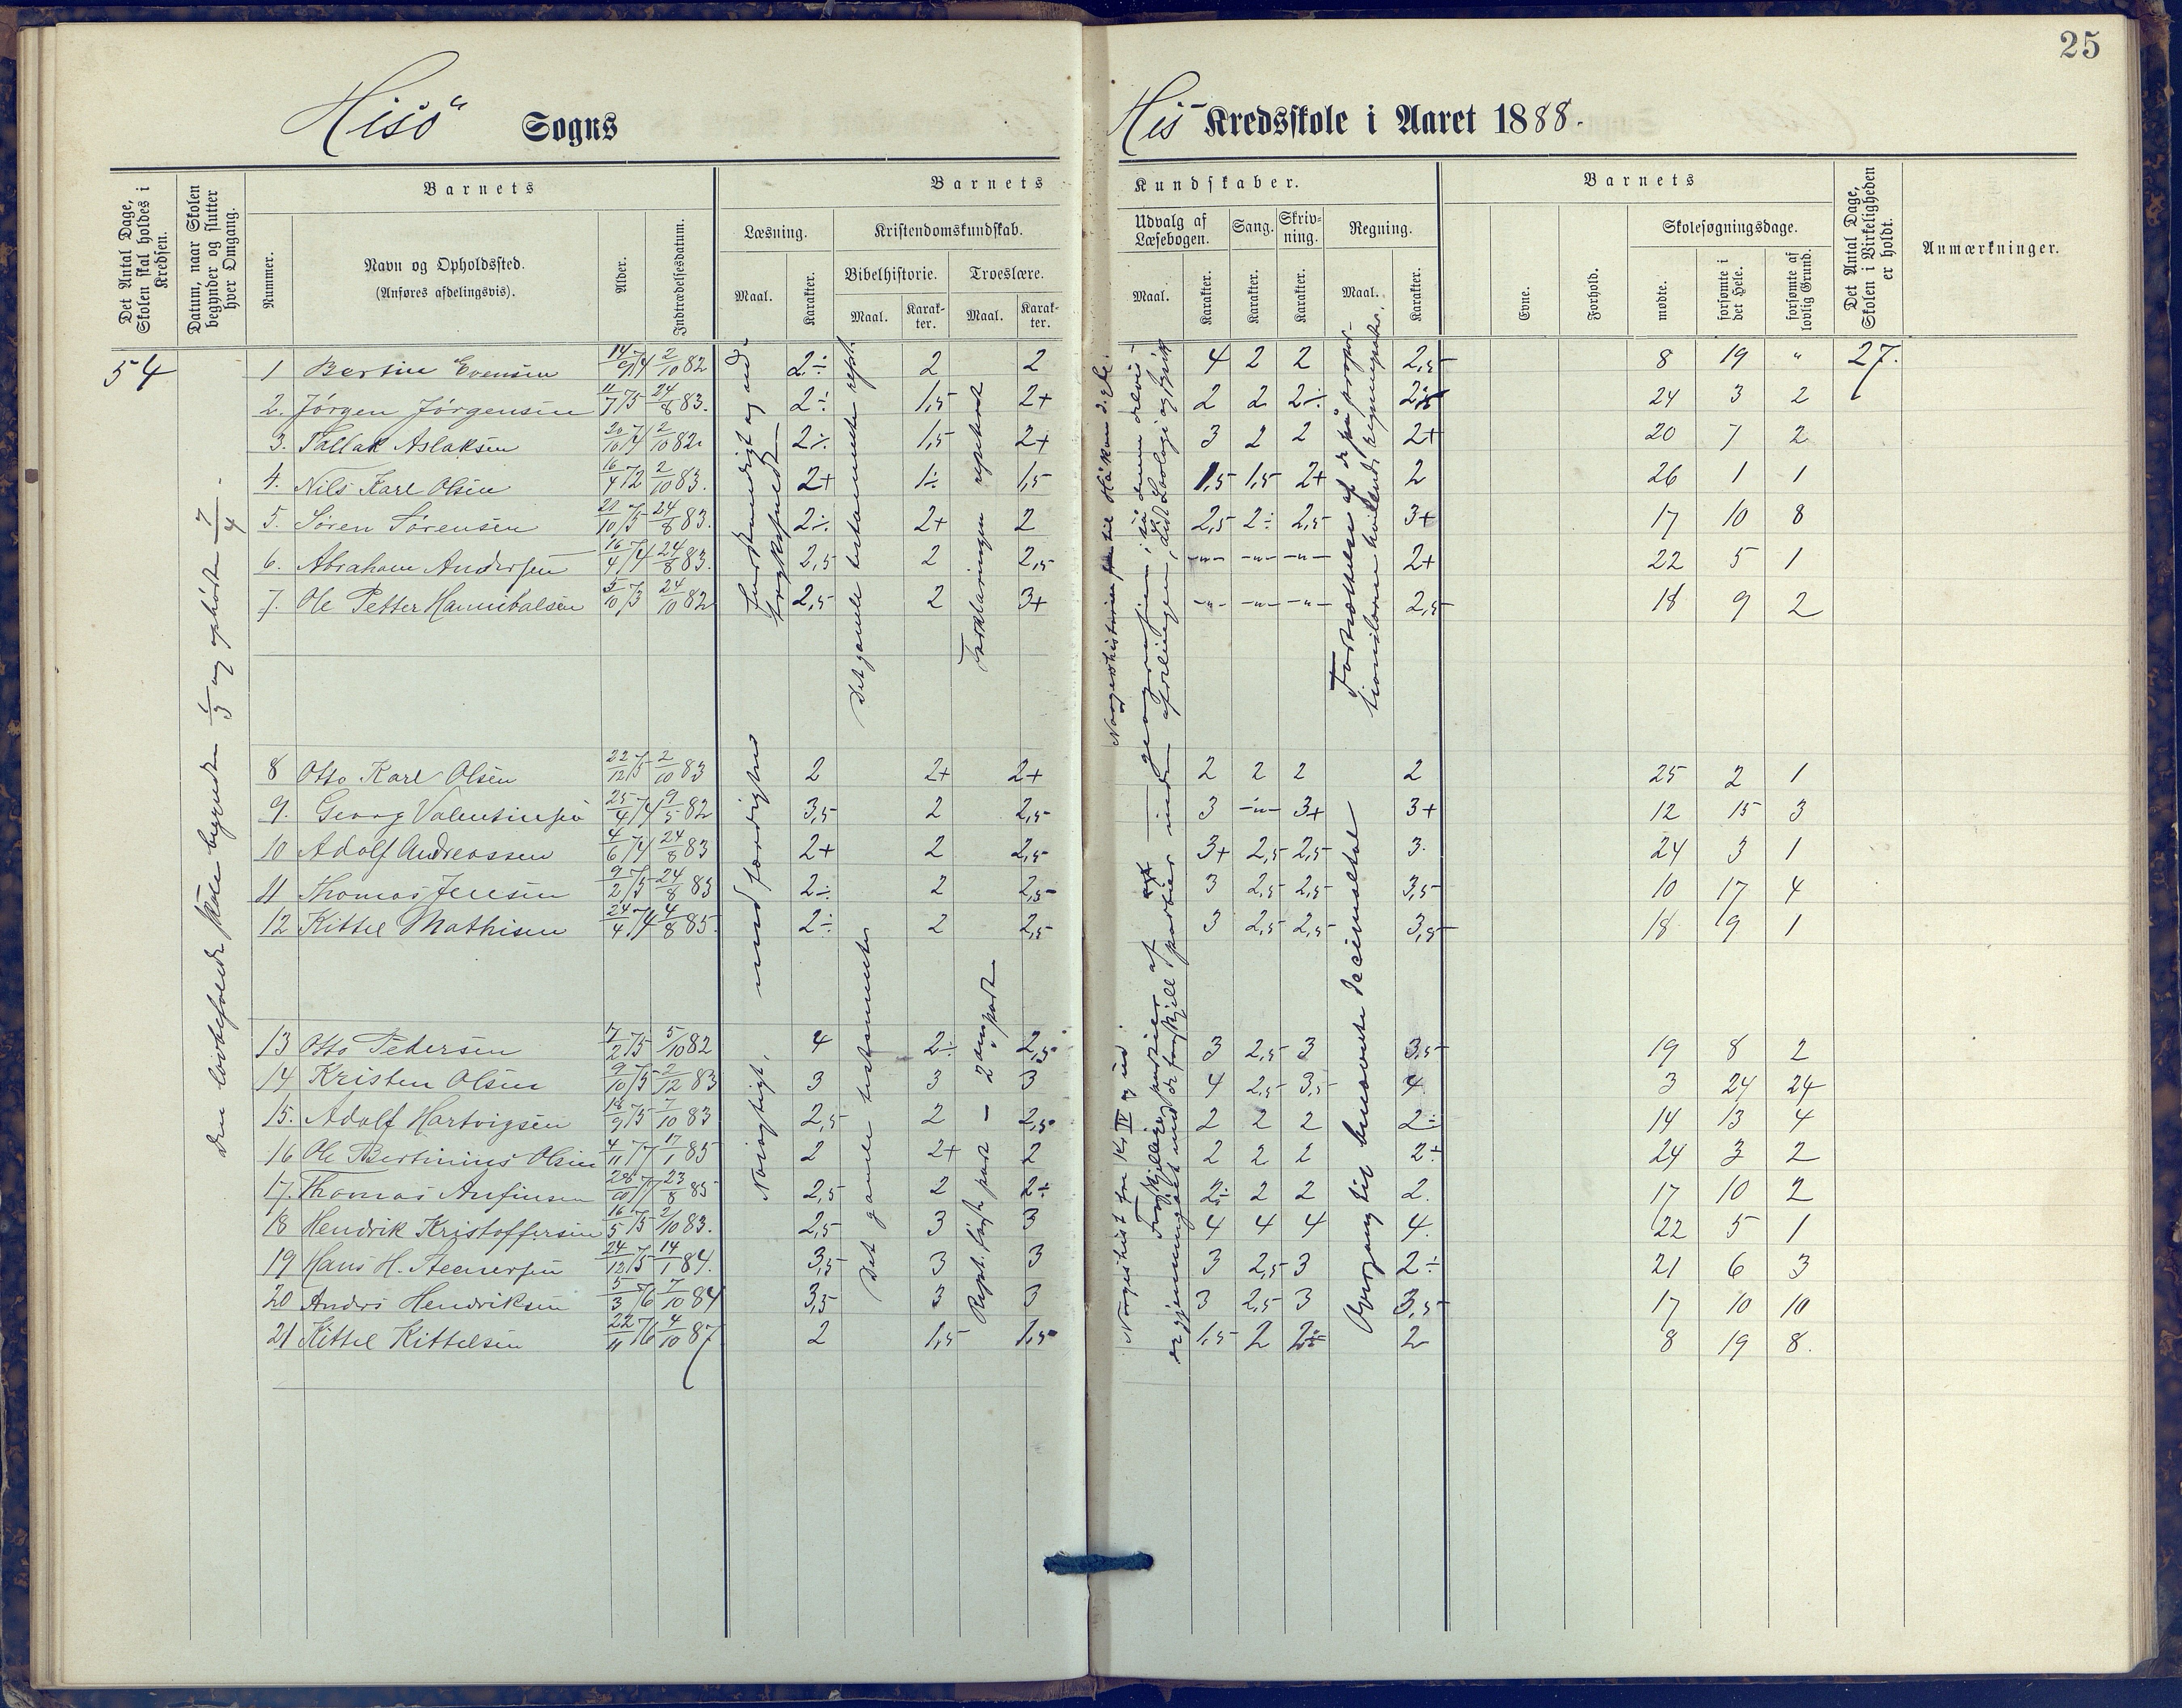 25
Hisö Sogns
His Kredsskole i Aaret 1888.
Det Antal Dage, Skolen skal holdes i Kredsen.
Datum, naar Skolen begynder og slutter hver Omgang.
Barnets
Nummer.
Navn og Opholdssted.
(Anføres afdelingsvis).
Alder.
Indtrædelsesdatum.
Barnets Kundskaber.
Læsning.
Maal.
Karakter.
Kristendomskundskab.
Bibelhistorie.
Maal.
Karakter.
Troeslære.
Maal.
Karakter.
Udvalg af Læsebogen.
Maal.
Karakter.
Sang.
Karakter.
Skrivning.
Karakter.
Regning.
Maal.
Karakter.
Barnets
Evne.
Forhold.
Skolesøgningsdage.
mødte.
forsømte i det Hele.
forsømte af lovlig Grund.
Det Antal Dage, Skolen i Virkeligheden er holdt.
Anmærkninger.
54
Den lovbefalede skole begyndte 1/3 og ophörte 7/4.
1 Bertin Evensen 14/9 74 2/10 82 2÷ 2 2 4 2 2 2,5 8 19 " 27.
2. Jörgen Jörgensen 11/7 75 24/8 83. 2÷ 1,5 2+ 2 2 2÷ 2,5 24 3 2
3. Tallak Aslaksen 20/10 74 2/10 82. 2÷ 1,5 2+ 3 2 2 2+ 20 7 2
4. Nils Karl Olsen 16/4 72 2/10 83. 2+ 1÷ 1,5 1,5 1,5 2+ 2 26 1 1
5. Sören Sörensen 21/10 75 24/8 83. 2÷ 2+ 2 2,5 2÷ 2,5 3+ 17 10 8
6. Abraham Andersen 16/4 74 24/8 83. 2,5 2 2,5 -"- -"- -"- 2+ 22 5 1
7. Ole Petter Hannibalsen 5/10 73 24/10 82 2,5 2 3+ -"- -"- -"- 2,5 18 9 2
8 Otto Karl Olsen 22/12 75 2/10 83 2 2+ 2+ 2 2 2 2 25 2 1
9. Georg Valentinsen 25/4 74 9/5 82 3,5 2 2,5 3 -"- 3+ 3+ 12 15 3
10 Adolf Andreassen 4/6 74 24/8 83 2+ 2 2,5 3+ 2,5 2,5 3. 24 3 1
11 Thomas Jensen 9/2 75 24/8 83 2÷ 2 2,5 3 2,5 2,5 3,5 10 17 4
12 Kittel Mathisen 24/4 74 4/8 85. 2÷ 2 2,5 3 2,5 2,5 3,5 18 9 1
13 Otto Pedersen 17/2 75 5/10 82 4 2÷ 2,5 3 2,5 3 3,5 19 8 2
14 Kristen Olsen 9/10 75 2/12 83 3 3 3 4 2,5 3,5 4 3 24 24
15. Adolf Hartvigsen 18/9 75 7/10 83 2,5 2 2,5 2 2 2 2÷ 14 13 4
16 Ole Bertinius Olsen 4/11 77 17/1 85 2 2+ 2 2 2 2 2÷ 24 3 2
17. Thomas Anfinsen 28/10 77 23/8 85 2,5 2 2÷ 2÷ 2 2 2. 17 10 2
18 Hendrik Kristoffersen 16/5 75 2/10 83. 2,5 3 3 4 4 4 4. 22 5 1
19 Hans H. 24/12 75 14/1 84. 3,5 3 3 3 2,5 3 2÷ 21 6 3
20 Anders Hendriksen 5/3 76 7/10 84 3,5 3 3 3 2,5 3 3,5 17 10 10
21 Kittel Kittelsen 22/11 76 4/10 87 2 1,5 1,5 1,5 2 2÷ 2 8 19 8.
Nöiagtigt, med færdighed
Det gamle testamente rept.
Forklaringen repeteret
Det gamle testamente
Rept. förste part – 2den part
Fortsættelse af de på proportionslæren hvilende regningsarter.
Overgang til benævnte decimaltal